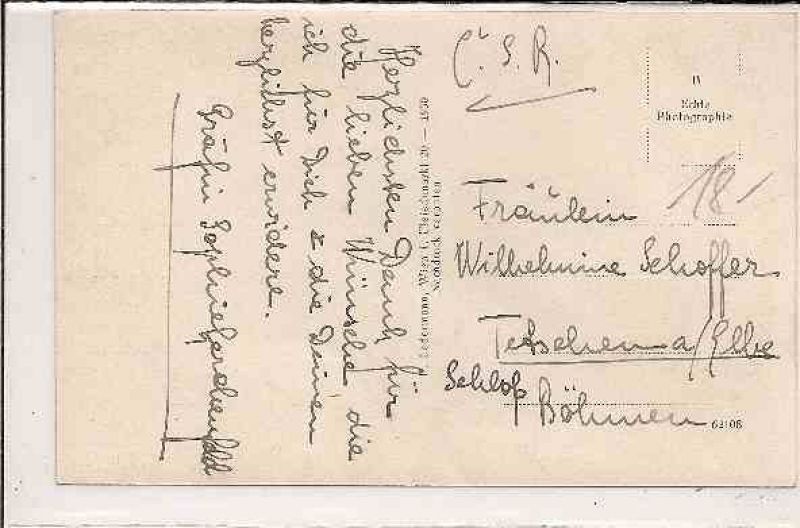 Herzlichsten Dank für
die lieben Wünsche die
ich für Dich & die Deinen
herzlichst erwidere.
Gräfin Sophie
Ledermann, Wien I, Fleischmarkt 20 — 1930
Nachdruck verboten
Č. S. R.
Echte
Photographie
18-
Fräulein
Wilhelmine Schoffer
Tetschen a/Elbe
Schloß
Böhmen